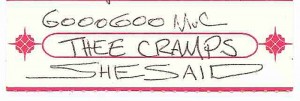 GOOOGOO MUC
THEE CRAMPS
SHE SAID